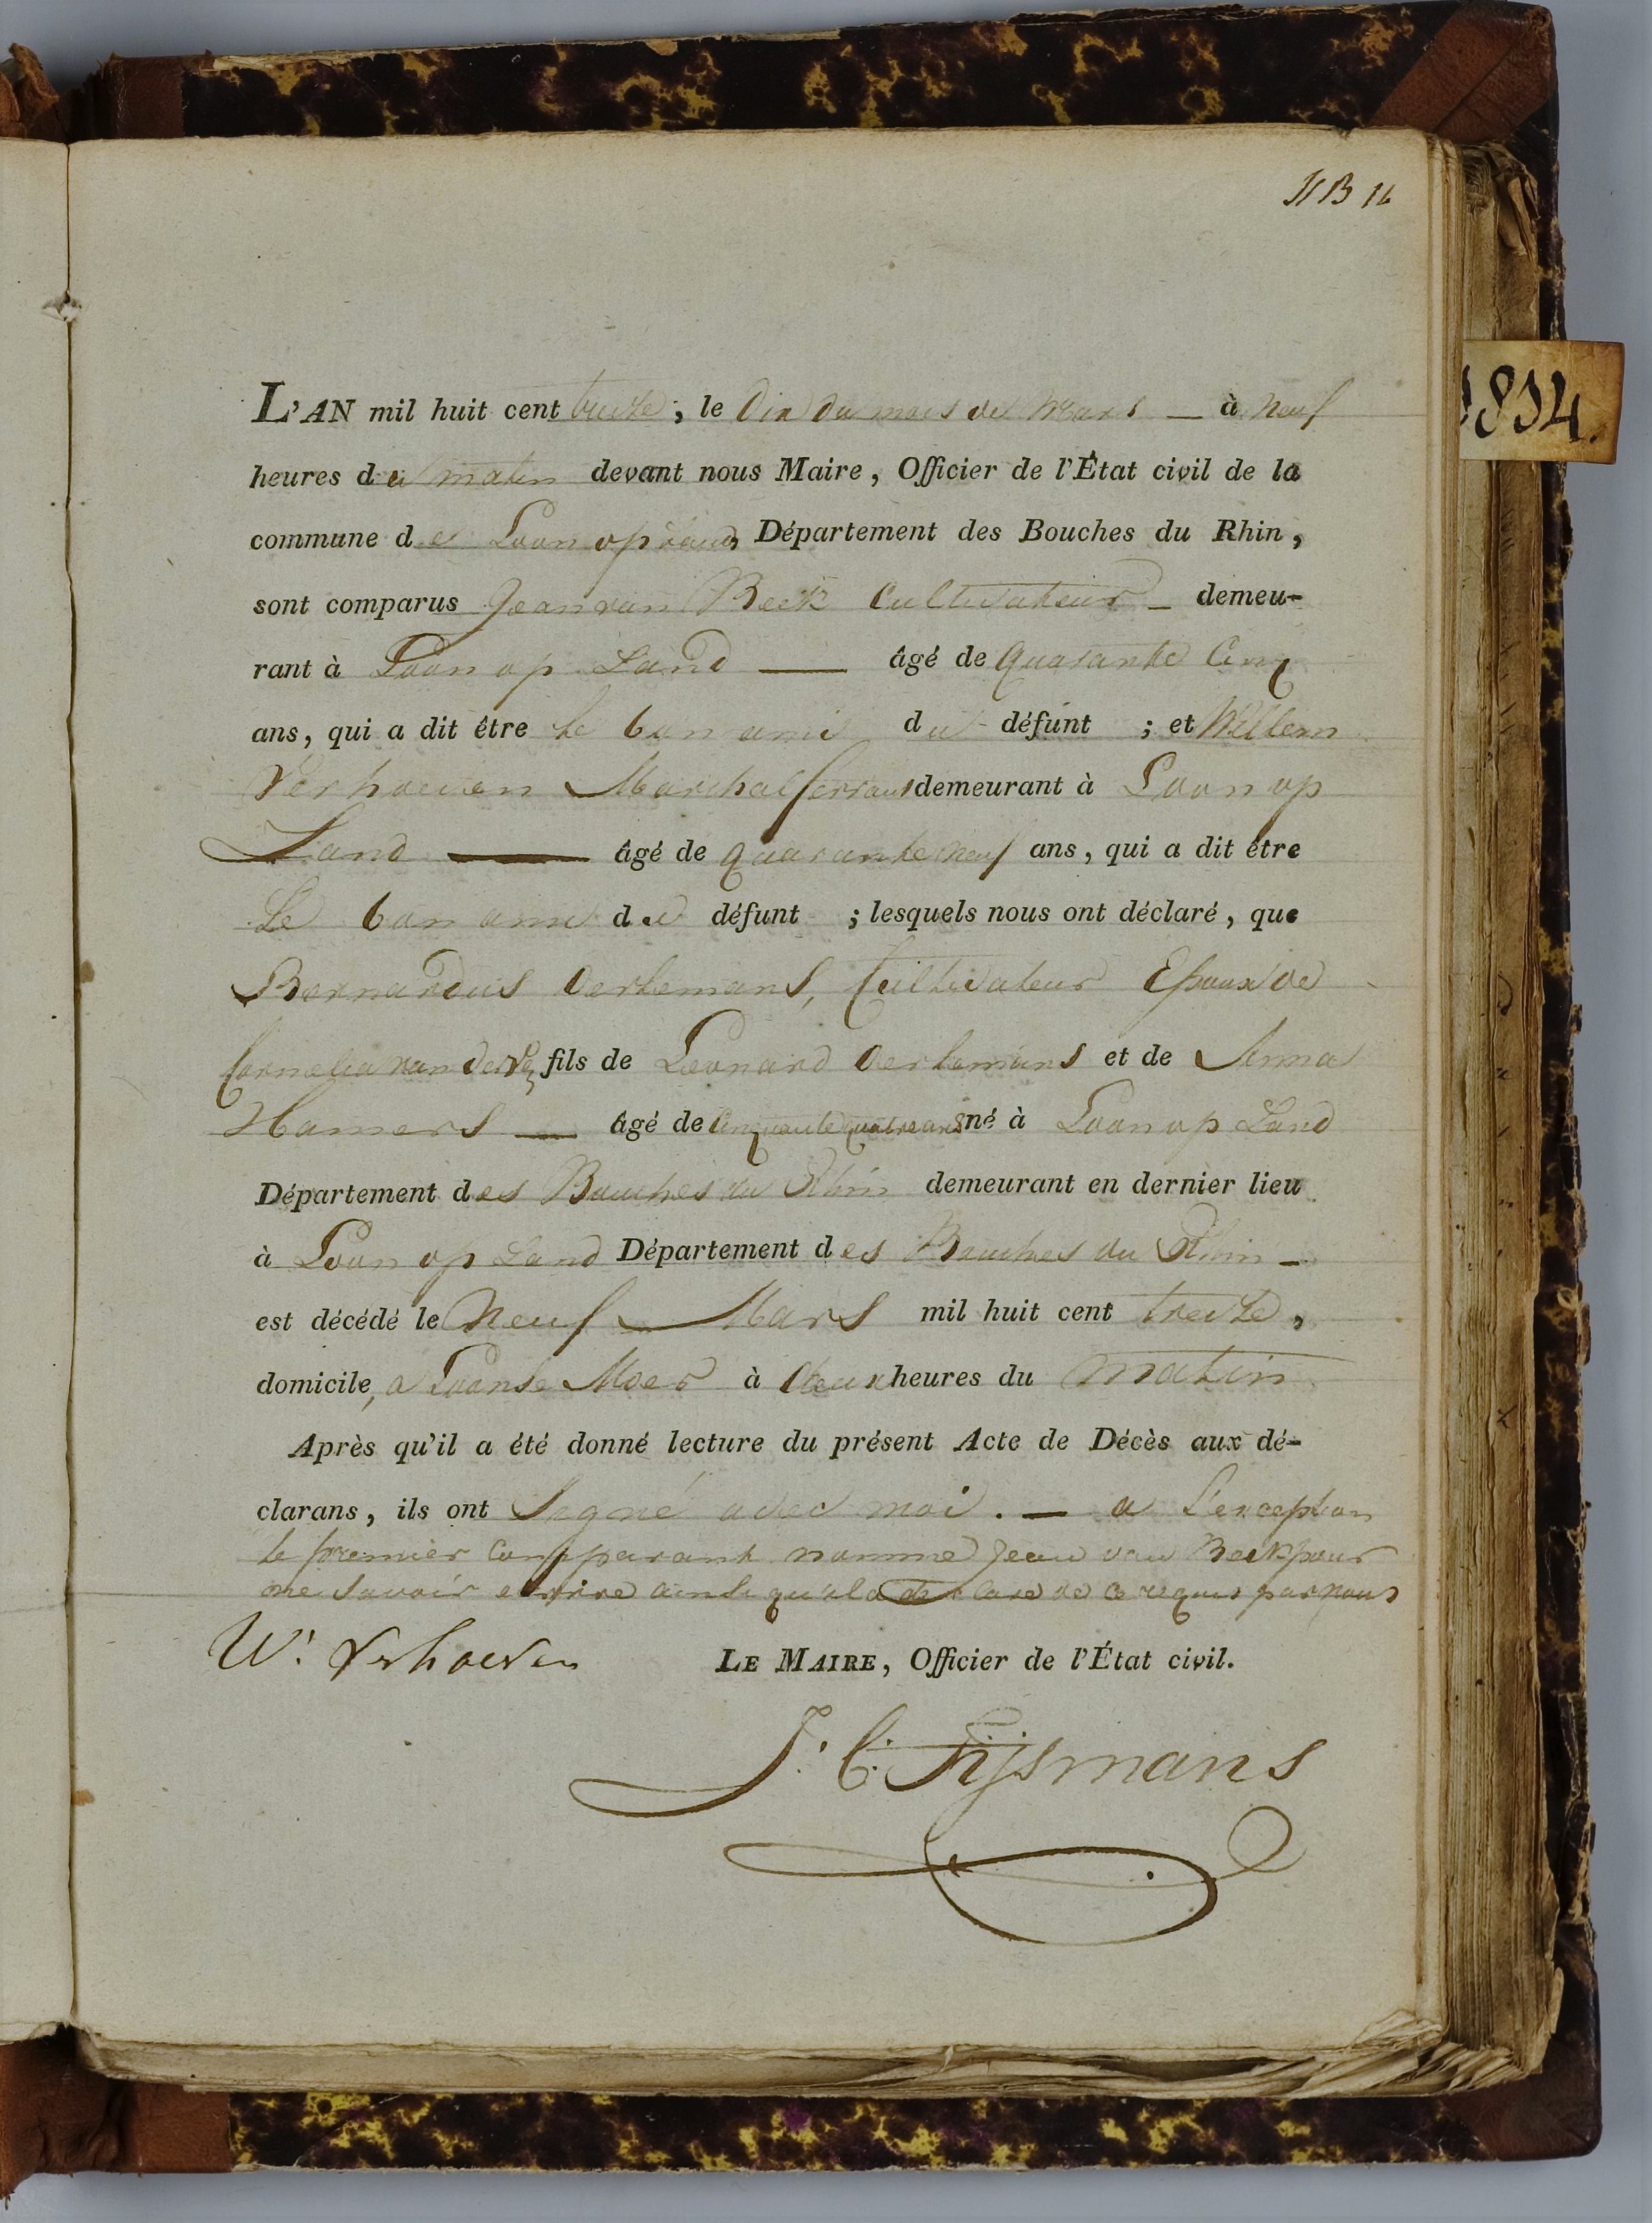 NB 16
L'AN mil huit cent treize, le Dix du mois de Mars — à Neuf
1814.
heures du matin devant nous Maire, Officier de l'État civil de la
commune de Loon op Zand, Département des Bouches du Rhin,
sont comparus Jean van Beek Cultivateur — demeu-
rant à Loon op Sand — âgé de Quarante Cinq
ans, qui a dit être le bon ami du défunt ; et Willem
Verhoeven Marchal ferrant demeurant à Loon op
Sand — âgé de quarante Neuf ans, qui a dit être
Le bon ami du défunt ; lesquels nous ont déclaré, que
Bernardus Oerlemans, Cultivateur Epoux de
Cornelia van der fils de Leonard Oerlemans et de Anna
Hamers — âgé de Cinquante quatre ans né à Loon op Sand
Département des Bouches du Rhin demeurant en dernier lieu
à Loon op Sand Département des Bouches du Rhin —
est décédé le Neuf Mars mil huit cent treize,
domicile, a Loonse Moer à deux heures du matin
Après qu'il a été donné lecture du présent Acte de Décès aux dé-
clarans, ils ont Signé avec moi. — a L'exception
le premier Compparant nommé Jean van Beek pour
ne Savoir ecrire ainsi qu'il a declare de ce requis par nous
W. Verhoeven
LE MAIRE, Officier de l'État civil.
J. C. Fijsmans